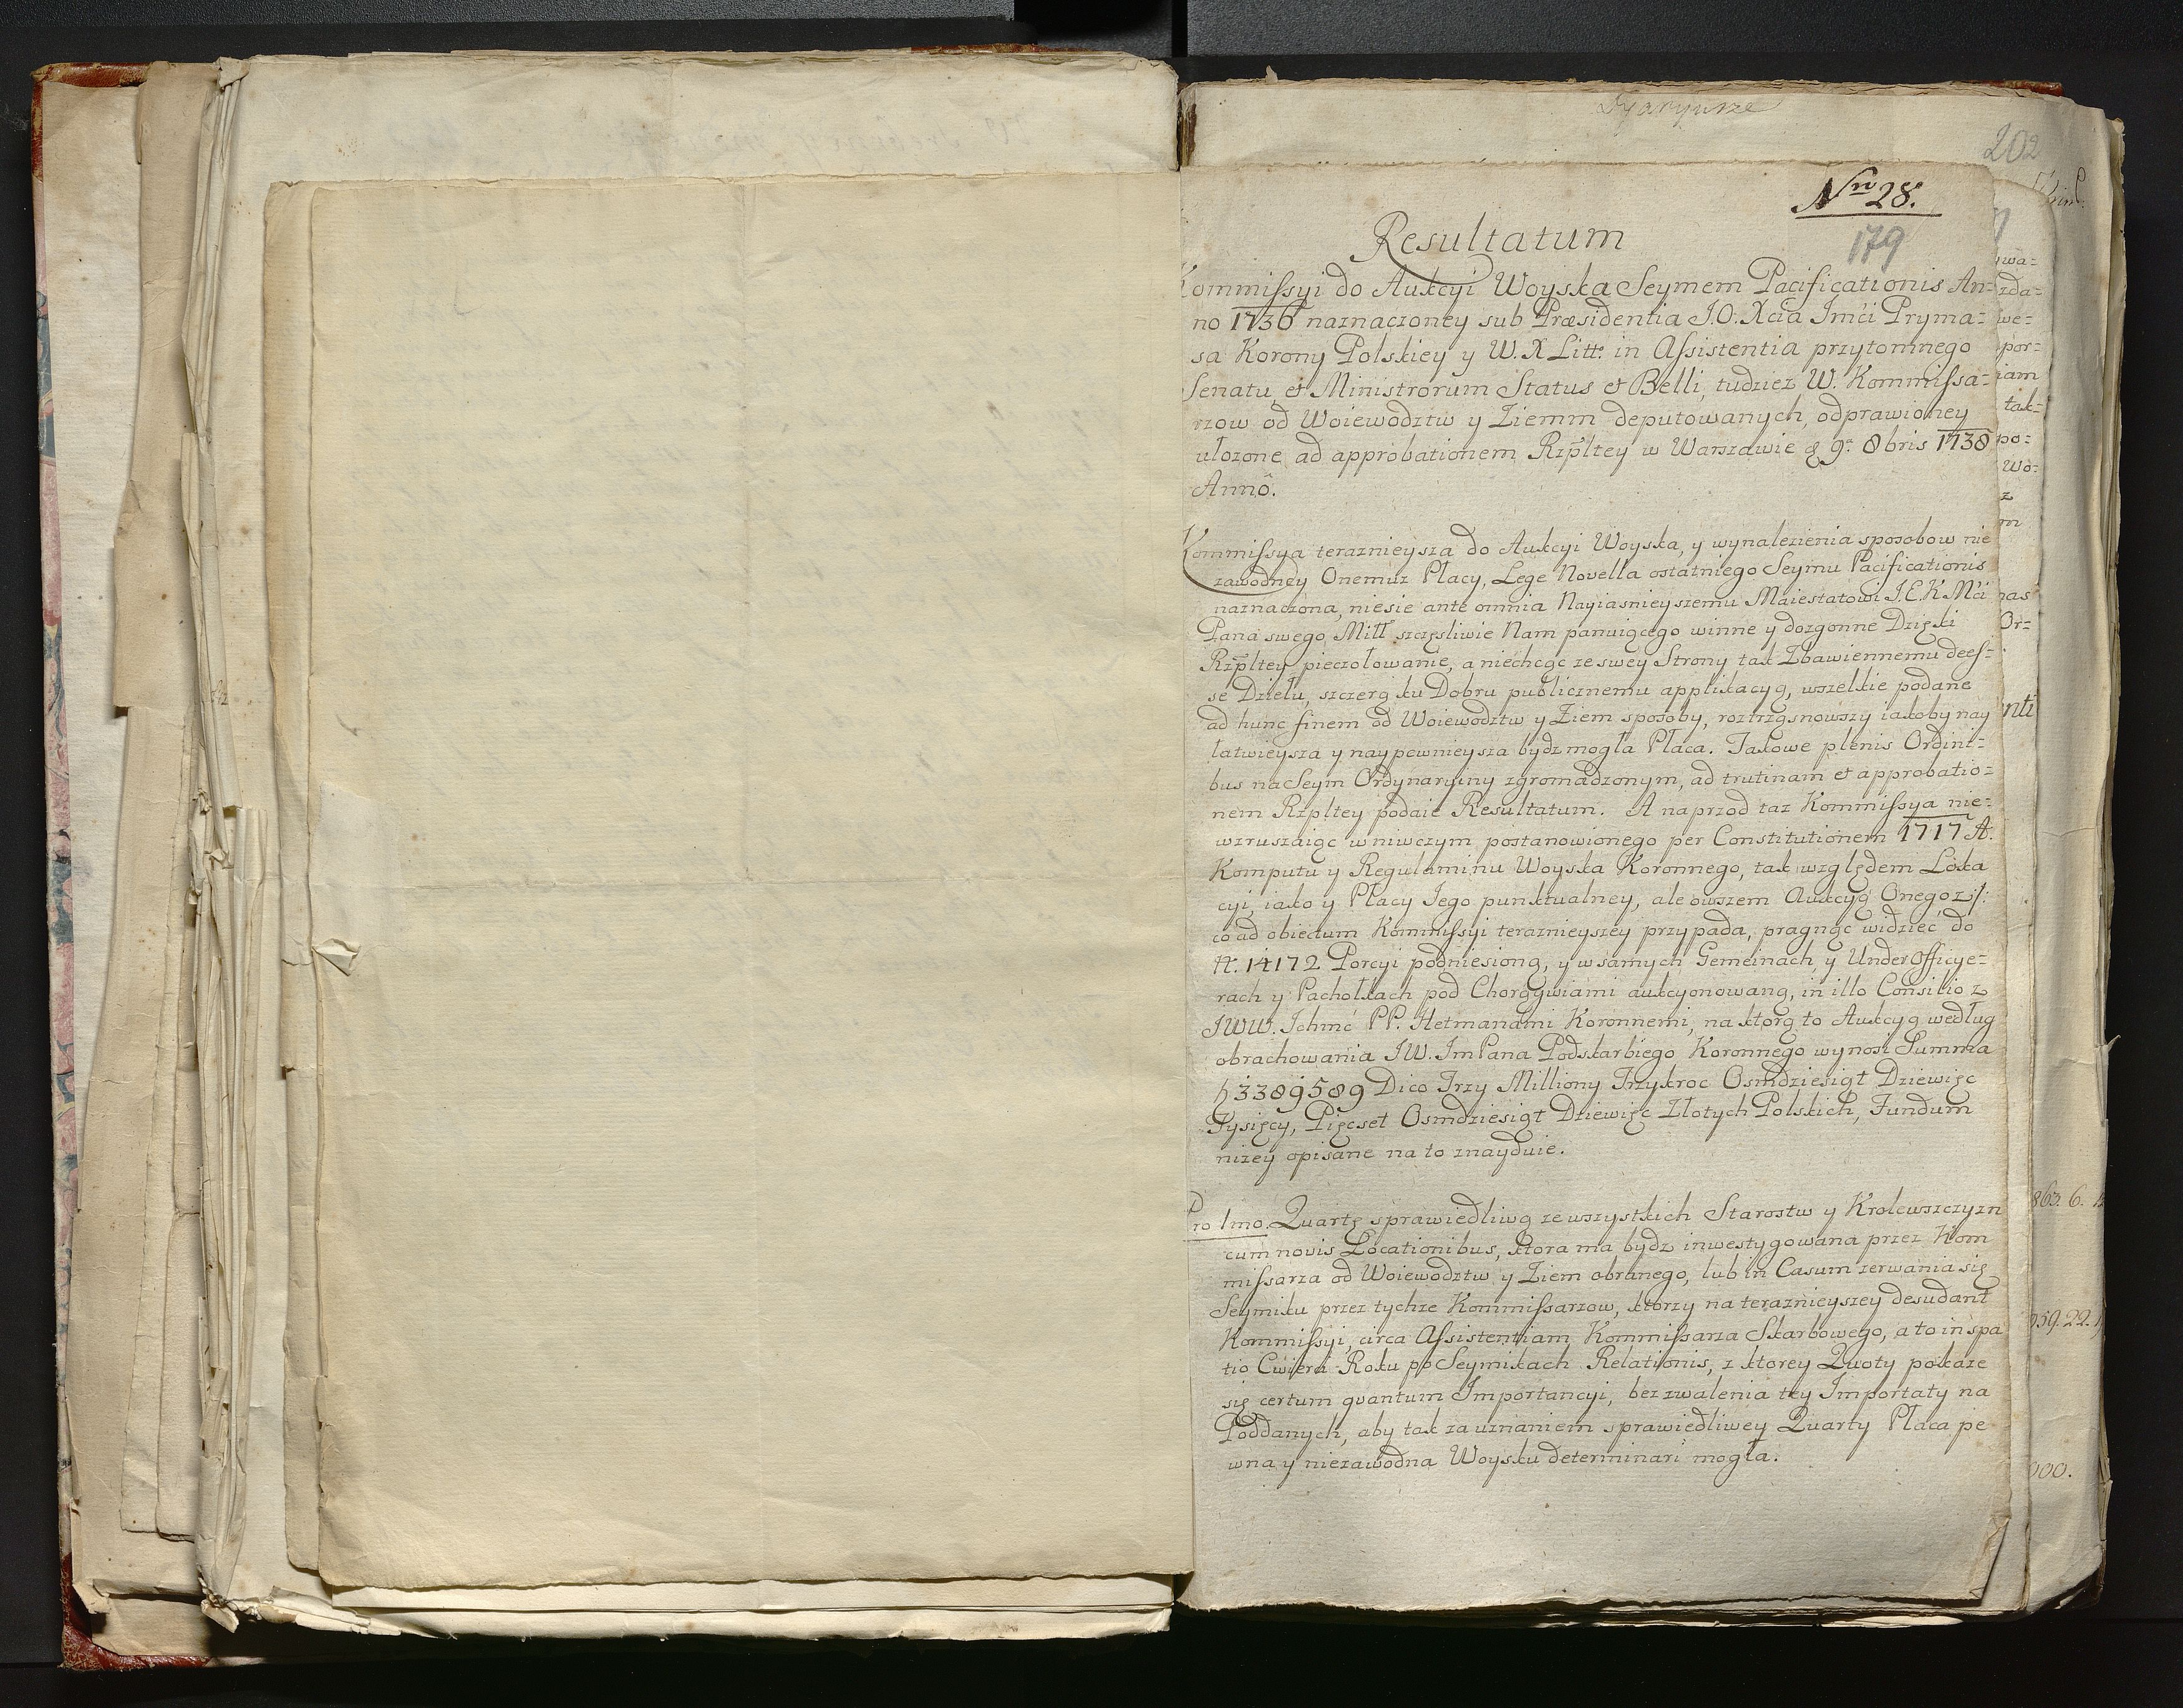 Dyaryusze
202
Nro 28.
179
Resultatum
Kommissyi do Aukcyi Woyska Seymem Pacificationis An=
no 1736 naznaczoney sub Præsidentia J.O. Xcia Jmci Pryma=
sa Korony Polskiey y W.X Litt: in Assistentia przytomnego
Senatu, et Ministrorum Status et Belli, tudziez W. Kommissa=
rzow od Woiewodztw y Ziemm deputowanych, odprawioney
ułozone ad approbationem Rzpltey w Warszawie 9a 8bris 1738
Annô.
Kommissya teraznieysza do Aukcyi Woyska, y wynalezienia sposobow nie
zawodney Onemuz Płacy, Lege Novella ostatniego Seymu Pacificationis
naznaczona, niesie ante omnia Nayiasnieyszemu Maiestatowi J.E.K.Mci
Pana swego Mitt szczęsliwie Nam panuiącego winne y dozgonne Dzięki
Rzpltey pieczołowanie, a niechcąc ze swey Strony tak Zbawiennemu dees=
se Dziełu, szczerą ku Dobru publicznemu applikacyą, wszelkie podane
ad hunc finem od Woiewodztw y Ziem sposoby, roztrząsnowszy iakoby nay
łatwieysza y naypewnieysza bydz mogła Płaca. Takowe plenis Ordini=
bus na Seym Ordynaryiny zgromadzonym, ad trutinam et approbatio=
nem Rzpltey podaie Resultatum. A naprzod taz Kommissya nie=
wzruszaiąc wniwczym postanowionego per Constitutionem 1717 A.
Komputu y Regulaminu Woyska Koronnego, tak względem Loka
cyi, iako y Płacy Jego punktualney, ale owszem Aukcyą Onegoz /:
co ad obiectum Kommissyi teraznieyszey przypada, pragnąc widziec do
tt. 14172 Porcyi podniesioną, y w samych Gemeinach, y Underofficye=
rach y Pachołkach pod Chorągwiami aukcyonowaną, in illo Consilio z
JWW. Jchmć PP. Hetmanami Koronnemi, na ktorą to Aukcyą według
obrachowania JW. JmPana Podskarbiego Koronnego wynosi Summa
3389589 Dico Trzy Milliony Trzykroc Osmdziesiąt Dziewięc
Tysięcy, Pięcset Osmdziesiąt Dziewięc Złotych Polskich, Fundum
nizey opisane na to znayduie.
Pro 1mo. Quartę sprawiedliwą ze wszystkich Starostw y Krolewszczyzn
cum novis Locationibus, ktora ma bydz inwestygowana przez Kom
missarza od Woiewodztw y Ziem obranego, lub in Casum zerwania się
Seymiku przez tychze Kommissarzow, ktorzy na teraznieyszey desudant
Kommissyi, circa Assistentiam Kommissarza Skarbowego, a to in spa
tio Cwierci Roku po Seymikach Relationis, z ktorey Quoty pokaze
się certum quantum Importancyi, bez zwalenia tey Importaty na
Poddanych, aby tak za uznaniem sprawiedliwey Quarty Płaca pe
wna y niezawodna Woysku determinari mogła.